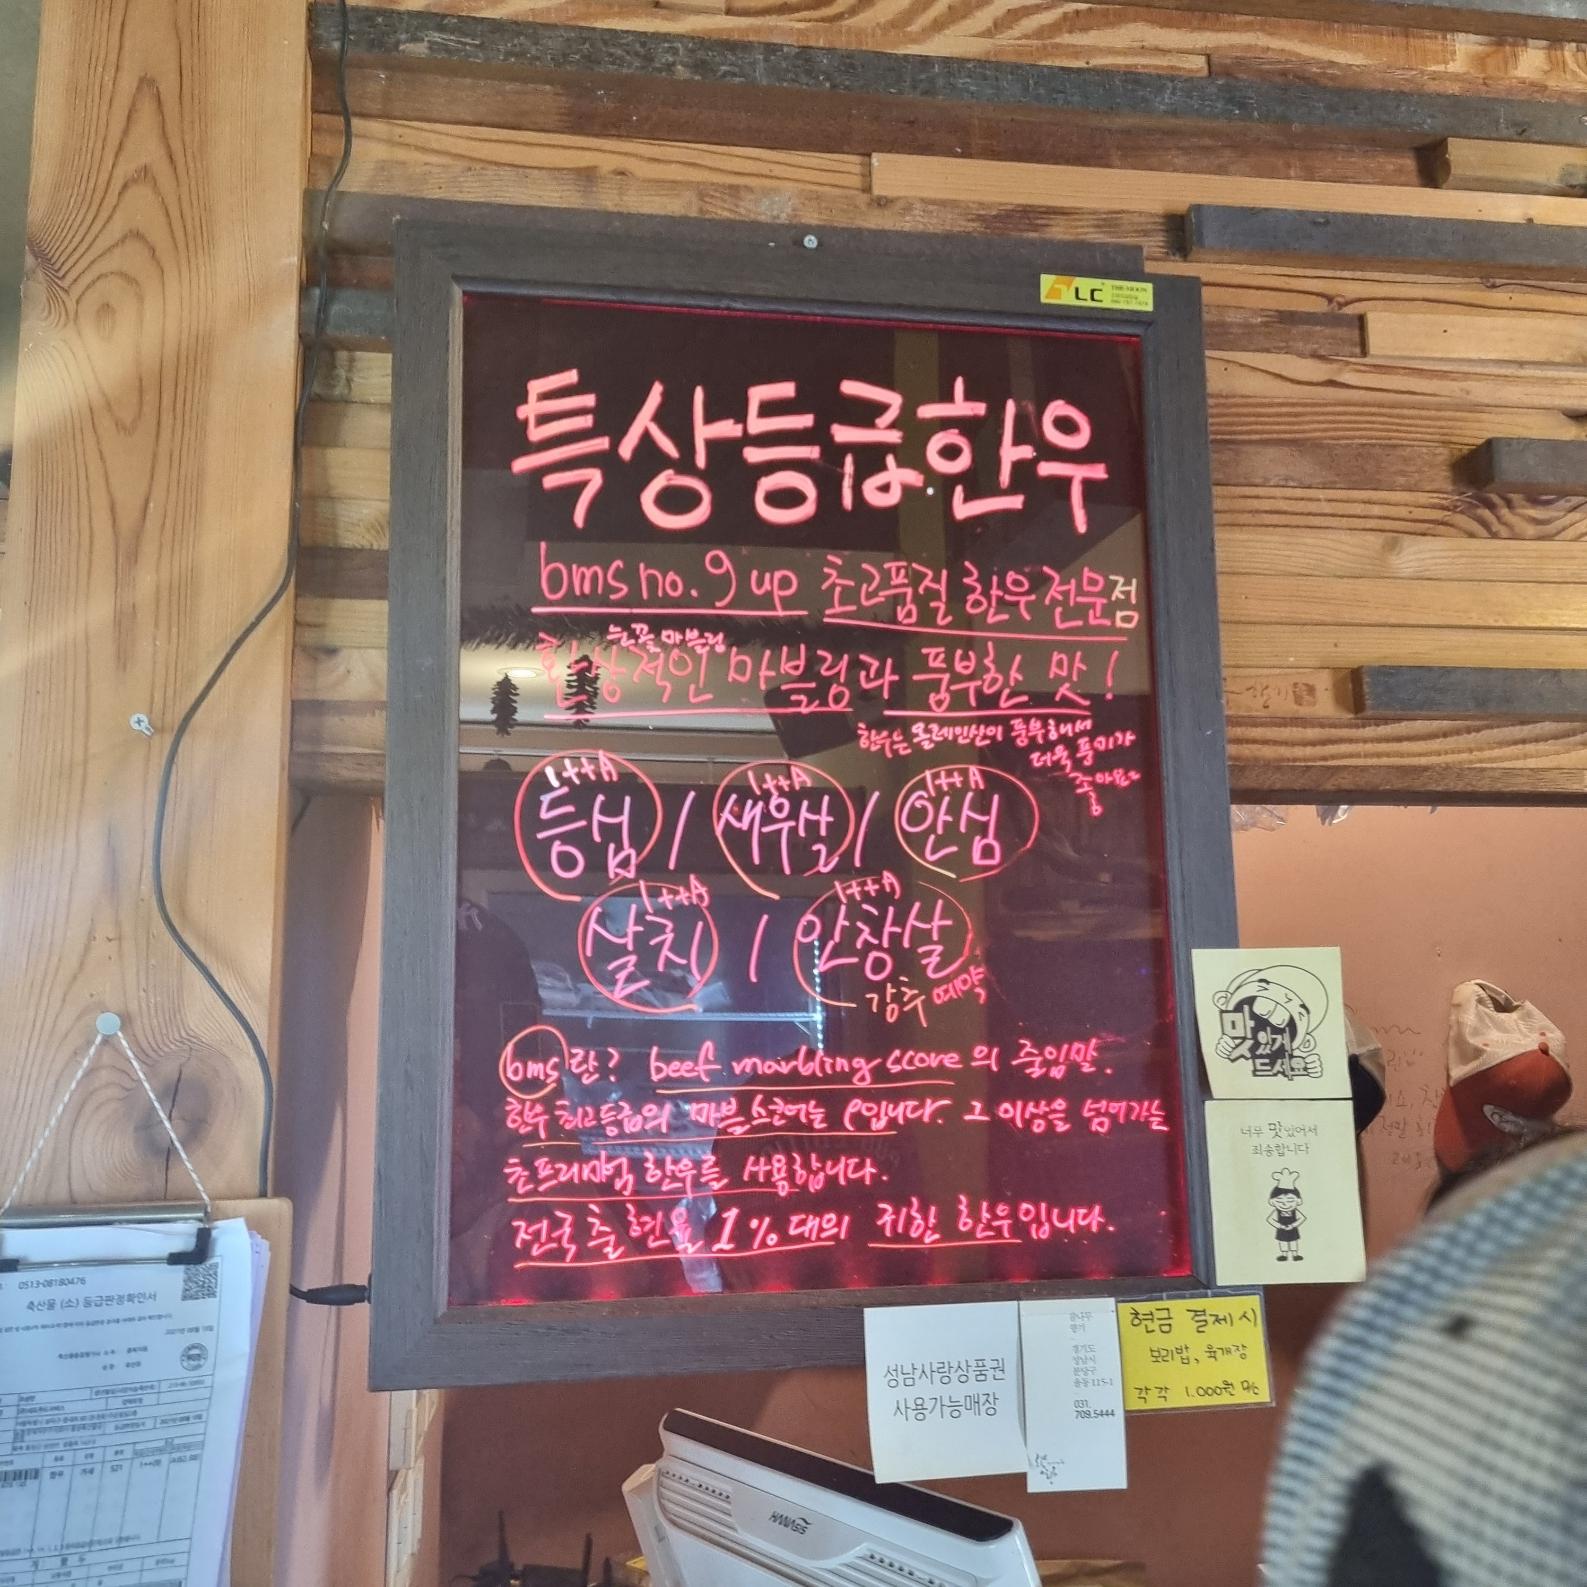 특상등급한우
bms no. 9 up 초고품질 한우 전문점
눈꽃 마블링
환상적인 마블링과 풍부한 맛!
한우는 올레인산이 풍부해서
더욱 풍미가
좋아요~
1++A 1++A 1++A
등심 / 새우살 / 안심
1++A 1++A
살치 / 안창살
강추 예약
bms란? beef marbling score의 줄임말.
한우 최고등급의 마블스코어는 9입니다. 그 이상을 넘어가는
초프리미엄 한우를 사용합니다.
전국출현율 1%대의 귀한 한우입니다.
LC
맛있게
드세요
너무 맛있어서
죄송합니다
성남사랑상품권
사용가능매장
향기
경기도
성남시
분당구
율동 115-1
031.
709.5444
현금 결제시
보리밥, 육개장
각각 1.000원
0513-08180476
축산물 (소) 등급판정확인서
HANASIS